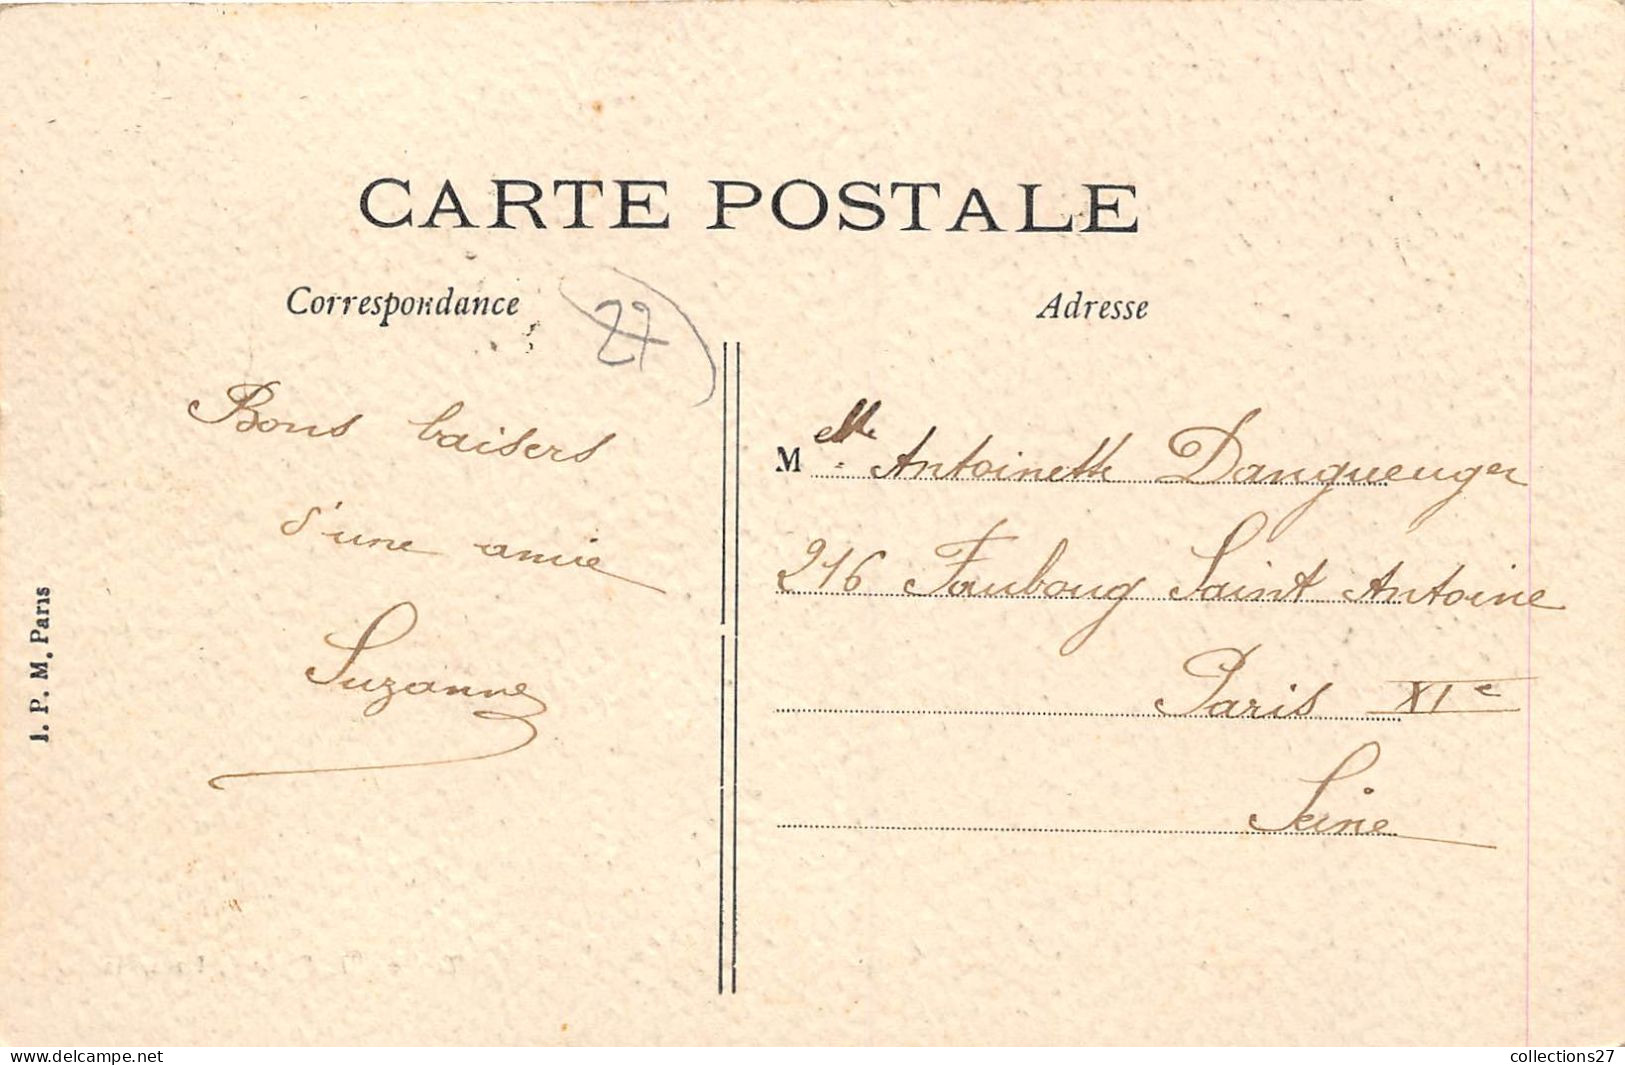 CARTE POSTALE
Correspondance
Adresse
27
Bons baisers
d'une amie
Suzanne
Melle Antoinette Dangueuger
216 Fauboug Saint Antoine
Paris XIe
Seine
J. P. M. Paris
www.delcampe.net
collections27